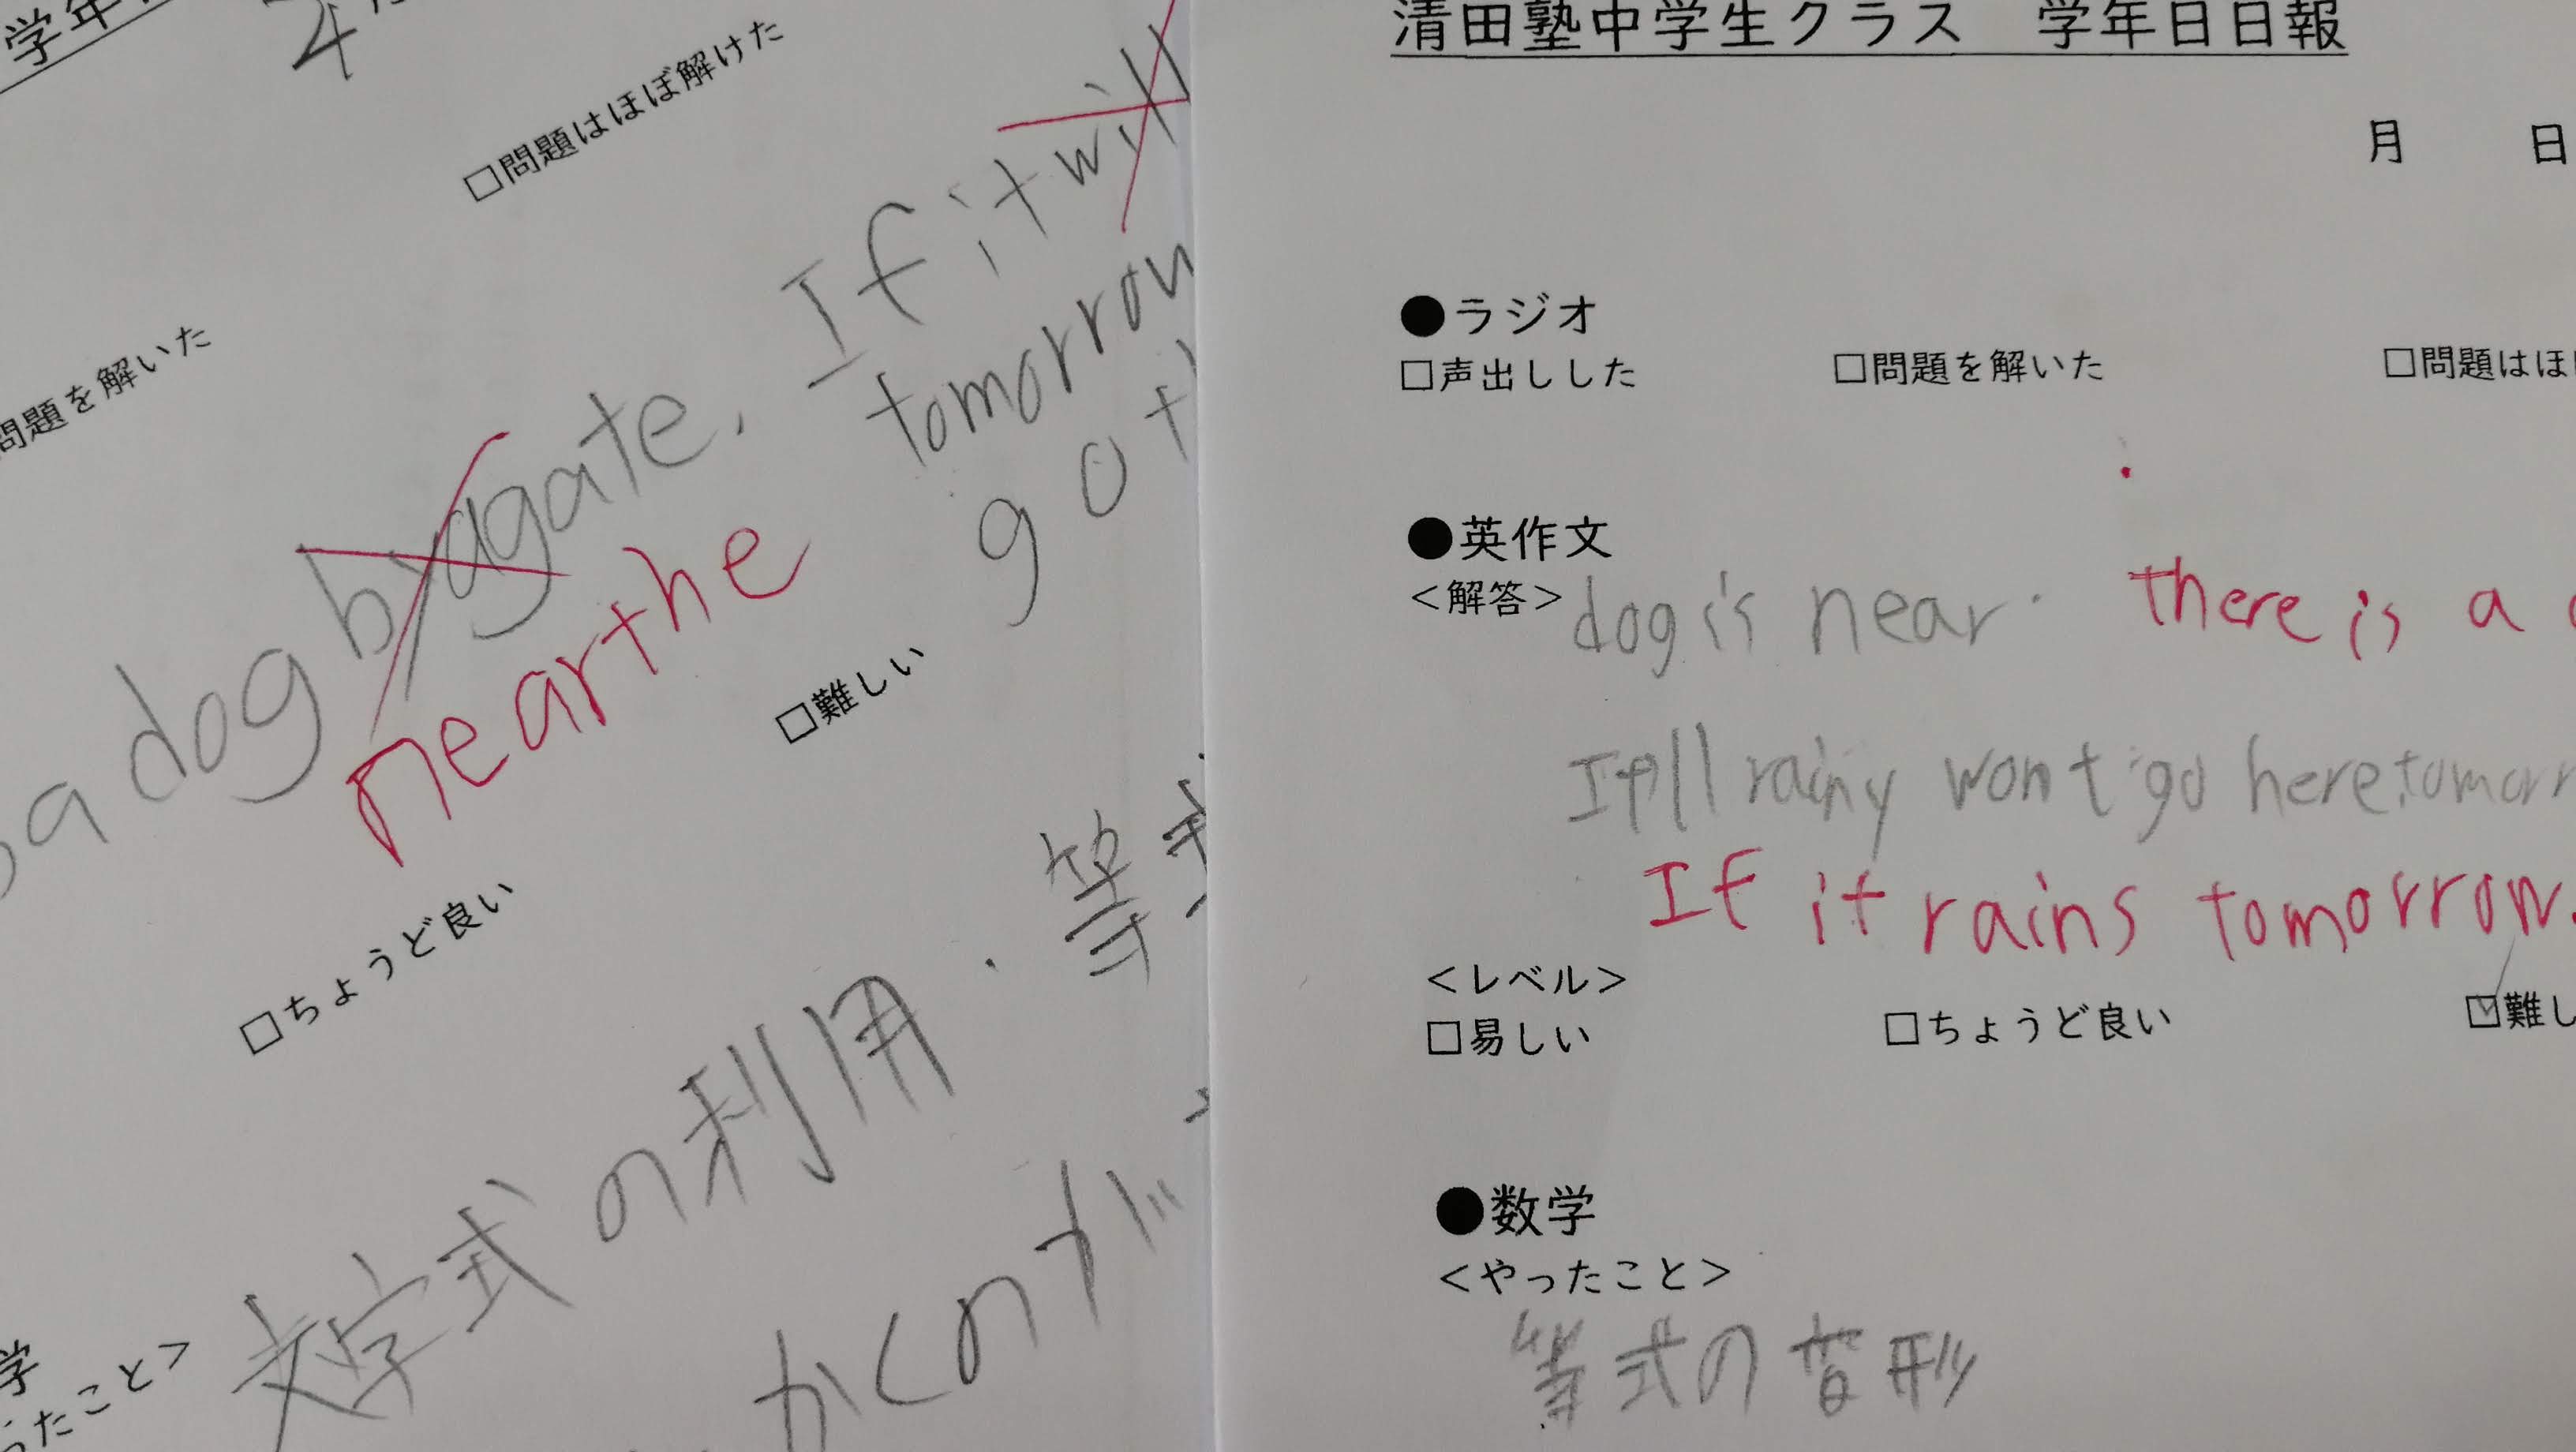 学年
4
□問題はほぼ解けた
問題を解いた
a dog by a gate. If it will
near the
tomorrow
go t
□難しい
□ちょうど良い
学
ったこと>
文字式の利用・等式
かくのが
清田塾中学生クラス　学年日日報
月　日
●ラジオ
□声出しした　□問題を解いた　□問題はほ
●英作文
<解答>
dog is near. there is a
rainy won t go here tomorr
If it rains tomorrow.
<レベル>
□易しい　□ちょうど良い　☑難し
●数学
<やったこと>
等式の変形